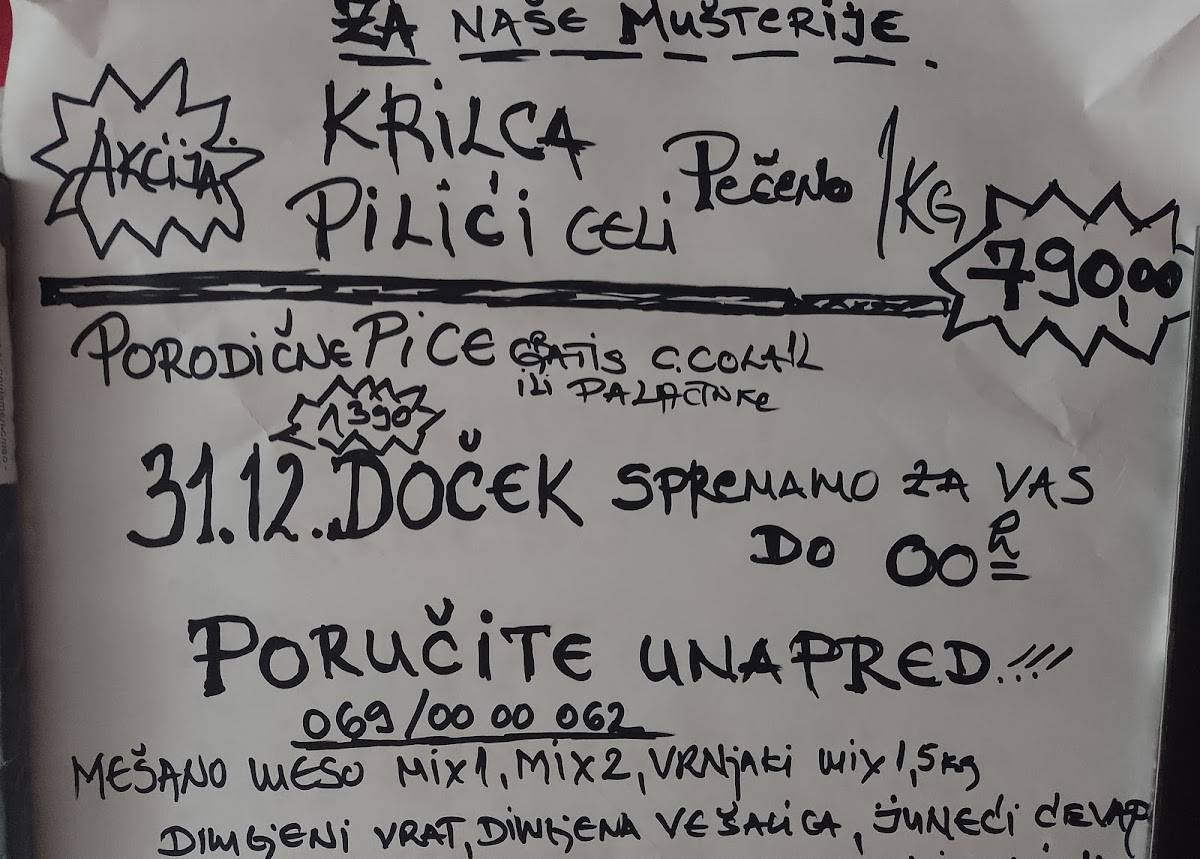 ZA NAŠE MUŠTERIJE.
AKCIJA
KRILCA
PILIĆI CELI PEČENO /KG 790,00
PORODIČNE PICE GRATIS C.COLA 1L
ILI PALAČINKE
1390
31.12. DOČEK SPREMAMO ZA VAS
DO 00h
PORUČITE UNAPRED...!!!
069/00 00 062
MEŠANO MESO MIX1, MIX2, VRNJAKI MIX 1,5kg
DIMLJENI VRAT, DIMLJENA VEŠALICA, JUNEĆI ĆEVAP